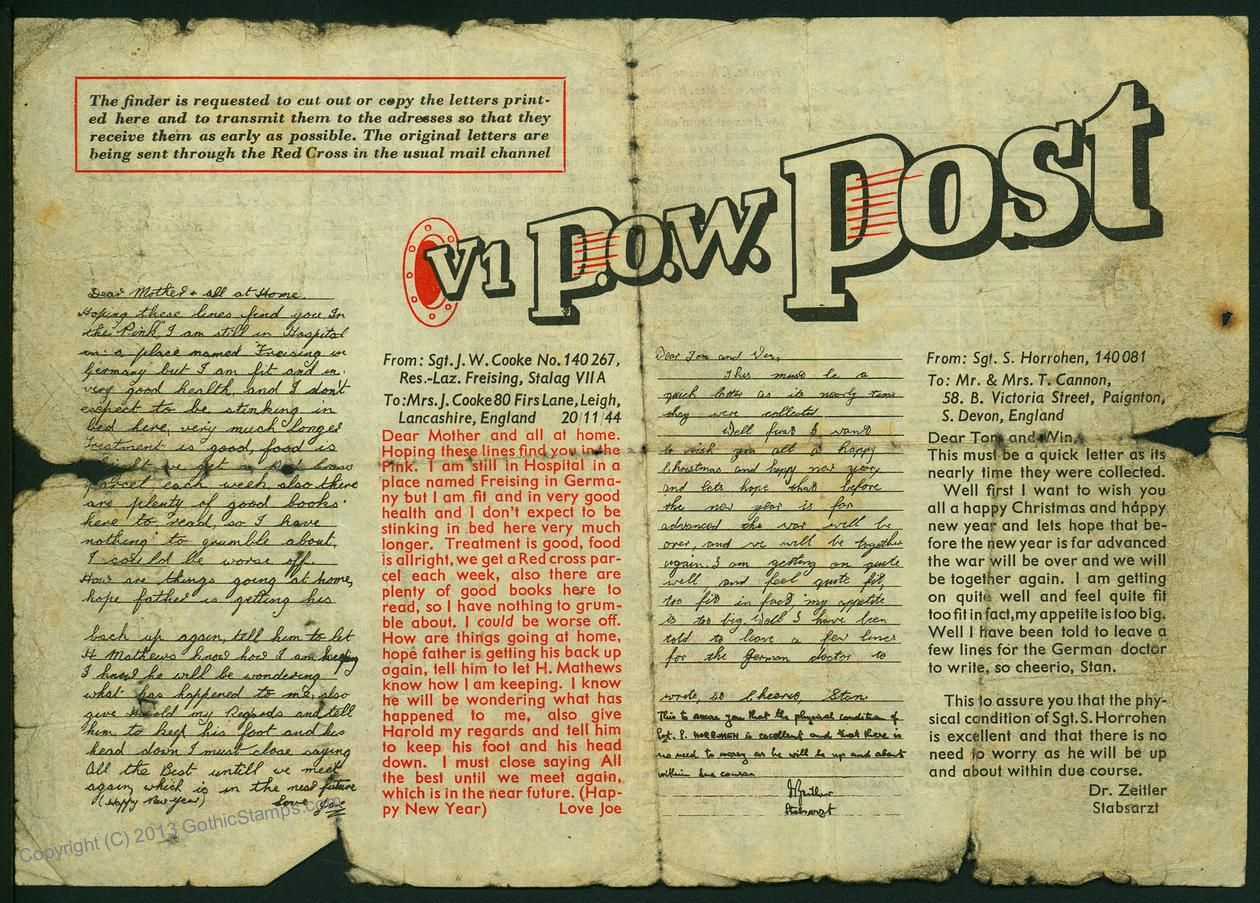 The finder is requested to cut out or copy the letters print-
ed here and to transmit them to the adresses so that they
receive them as early as possible. The original letters are
being sent through the Red Cross in the usual mail channel
V1 P.O.W. Post
Dear Mother & all at Home.
Hoping these lines find you In
the "Pink", I am still in Hospital
in a place named Freising in
Germany but I am fit and in
very good health, and I don't
expect to be stinking in
bed here, very much longer
Treatment is good, food is
we get a Red Cross
parcel each week, also there
are plenty of good books
here to read, so I have
nothing to grumble about,
I could be worse off.
How are things going at home,
hope father is getting his
back up again, tell him to let
H Mathews know how I am keeping
I know he will be wondering
what has happened to me, also
give Harold my Regards and tell
him to keep his foot and his
head down I must close saying
All the Best untill we meet
again, which is in the near future
(Happy New Year) Love Joe
From: Sgt. J. W. Cooke No. 140 267,
Res.-Laz. Freising, Stalag VII A
To: Mrs. J. Cooke 80 Firs Lane, Leigh,
Lancashire, England 20 11 44
Dear Mother and all at home.
Hoping these lines find you in the
Pink. I am still in Hospital in a
place named Freising in Germa-
ny but I am fit and in very good
health and I don't expect to be
stinking in bed here very much
longer. Treatment is good, food
is allright, we get a Red cross par-
cel each week, also there are
plenty of good books here to
read, so I have nothing to grum-
ble about. I could be worse off.
How are things going at home,
hope father is getting his back up
again, tell him to let H. Mathews
know how I am keeping. I know
he will be wondering what has
happened to me, also give
Harold my regards and tell him
to keep his foot and his head
down. I must close saying All
the best until we meet again,
which is in the near future. (Hap-
py New Year) Love Joe
Dear Tom and Win,
This must be a
quick letter as its nearly time
they were collected.
Well first I want
to wish you all a happy
Christmas and happy new year
and lets hope that before
the new year is far
advanced the war will be
over, and we will be together
again. I am getting on quite
well and feel quite fit,
too fit in fact, my appetite
is too big. Well I have been
told to leave a few lines
for the German doctor to
wrote, so Cheerio, Stan.
This to assure you that the physical condition of
Sgt. S. HORROHEN is excellent and that there is
no need to worry as he will be up and about
within due course
Dr Zeitler
Stabsarzt
From: Sgt. S. Horrohen, 140 081
To: Mr. & Mrs. T. Cannon,
58. B. Victoria Street, Paignton,
S. Devon, England
Dear Tom and Win,
This must be a quick letter as its
nearly time they were collected.
Well first I want to wish you
all a happy Christmas and happy
new year and lets hope that be-
fore the new year is far advanced
the war will be over and we will
be together again. I am getting
on quite well and feel quite fit
too fit in fact, my appetite is too big.
Well I have been told to leave a
few lines for the German doctor
to write, so cheerio, Stan.
This to assure you that the phy-
sical condition of Sgt. S. Horrohen
is excellent and that there is no
need to worry as he will be up
and about within due course.
Dr. Zeitler
Stabsarzt
Copyright (C) 2013 GothicStamps.com